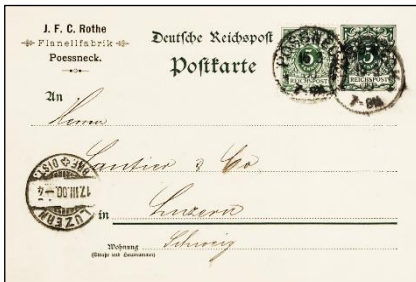 J. F. C. Rothe
Flanellfabrik
Poessneck.
Deutsche Reichspost
Postkarte
5
REICHSPOST
5
REICHSPOST
POESSNECK
7-8N
7-8N
An
Herren
& Co
in
Luzern
Schweiz
Wohnung
(Straße und Hausnummer)
LUZERN
17.III.00.-4
BRF. DIST.